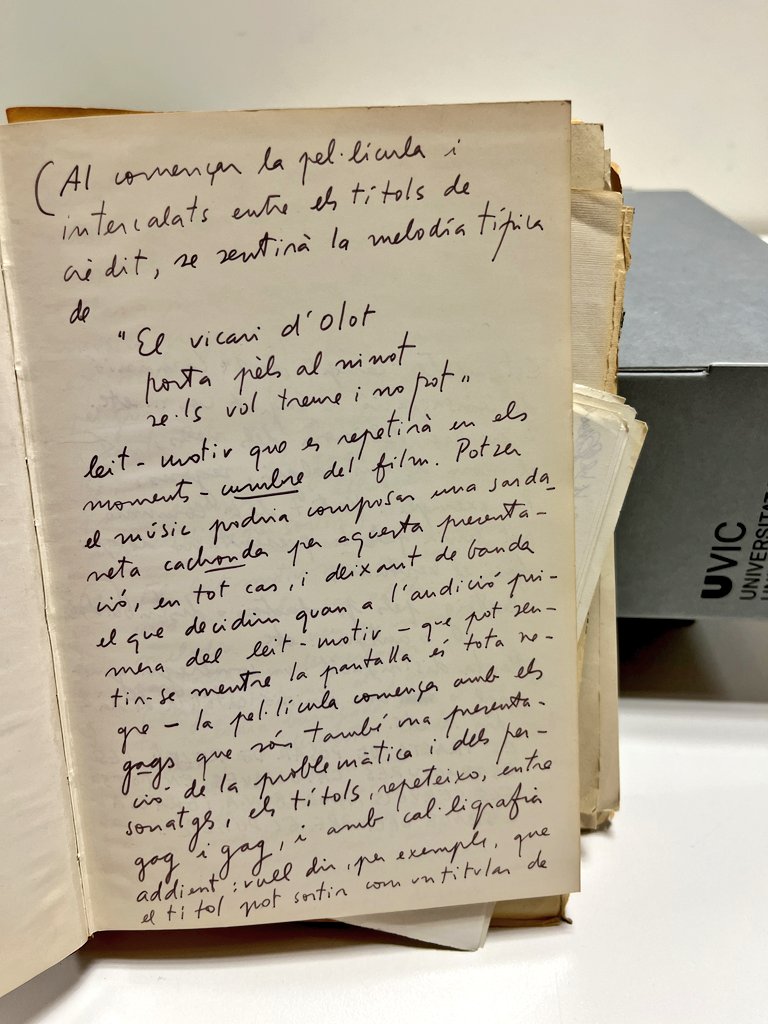 (Al començar la pel·lícula i
intercalats entre els títols de
crèdit, se sentirà la melodía típica
de
"El vicari d'Olot
porta pèls al ninot
se·ls vol treure i no pot"
leit-motiv que es repetirà en els
moments-cumbre del film. Potser
el músic podria composar una sarda
neta cachonda per aquesta presenta-
ció, en tot cas, i deixant de banda
el que decidim quan a l'audició pri-
mera del leit-motiv - que pot sen-
tir-se mentre la pantalla és tota ne-
gre - la pel·lícula començar amb els
gags que són també una presenta-
ció de la problemàtica i dels per-
sonatges, els títols, repeteixo, entre
gag i gag, i amb cal·ligrafia
addient: vull dir, per exemple, que
el títol pot sortir com un titular de
UVIC
UNIVERSITAT